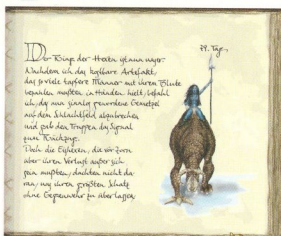 Der Ring der Hexen ist nun unser.
Nachdem ich das kostbare Artefakt,
das so viele tapfere Männer mit ihrem Blute
bezahlen mußten, in Händen hielt, befahl
ich, das nun sinnlos gewordene Gemetzel
auf dem Schlachtfeld abzubrechen
und gab den Truppen das Signal
zum Rückzuge.
Doch die Echsen, die vor Zorn
über ihren Verlust außer sich
sein mußten, dachten nicht da
ran, uns ihren größten Schatz
ohne Gegenwehr zu überlassen
79. Tag,